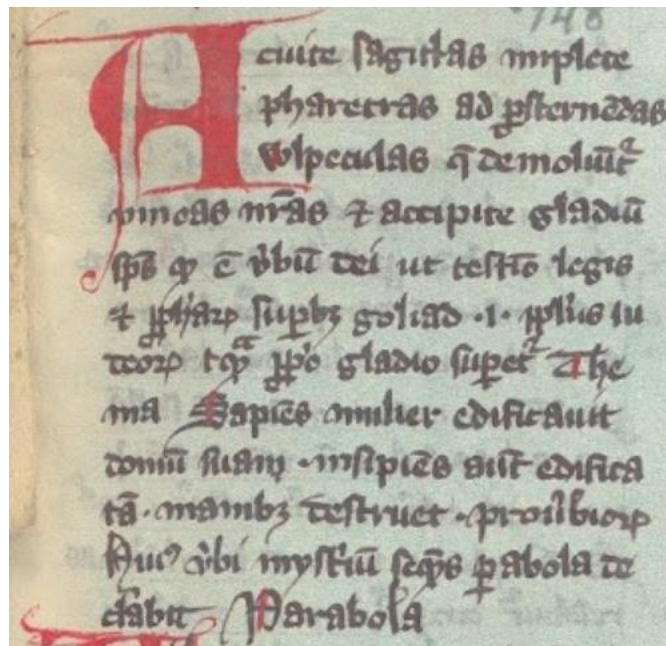 148
Acuite sagittas implete
pharetras ad ꝓsternēdas
wlpeculas q̄ demoliūt᷑
vineas nr̄as ⁊ accipite gladiū
sps̄ qͥ ē v̓bū dei ut testīo legis
⁊ ꝓph̓aꝝ suꝑbꝫ goliad ·i· ppl̓us iu
deoꝝ ꝓpͥo gladio suꝑet᷑ The
ma Sapiēs mulier edificauit
domū suam · insipiēs aūt edifica
tā · manibꝫ destruet · prou̓bioꝝ
Huiꝰ v̓bi myst̓iū seqn̄s ꝑabola de
clͣabit Parabola